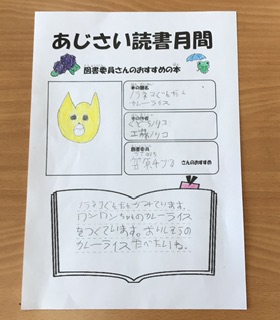 あじさい読書月間
図書委員さんのおすすめの本
本の題名
ノラネコぐんだん
カレーライス
本の作者
くどうノリコ
工藤ノリコ
図書委員
さんのおすすめ
ノラネコぐんだんが
ワンワンちゃんがカレーライス
をつくています。おいしそうな
カレーライスたべたいね。